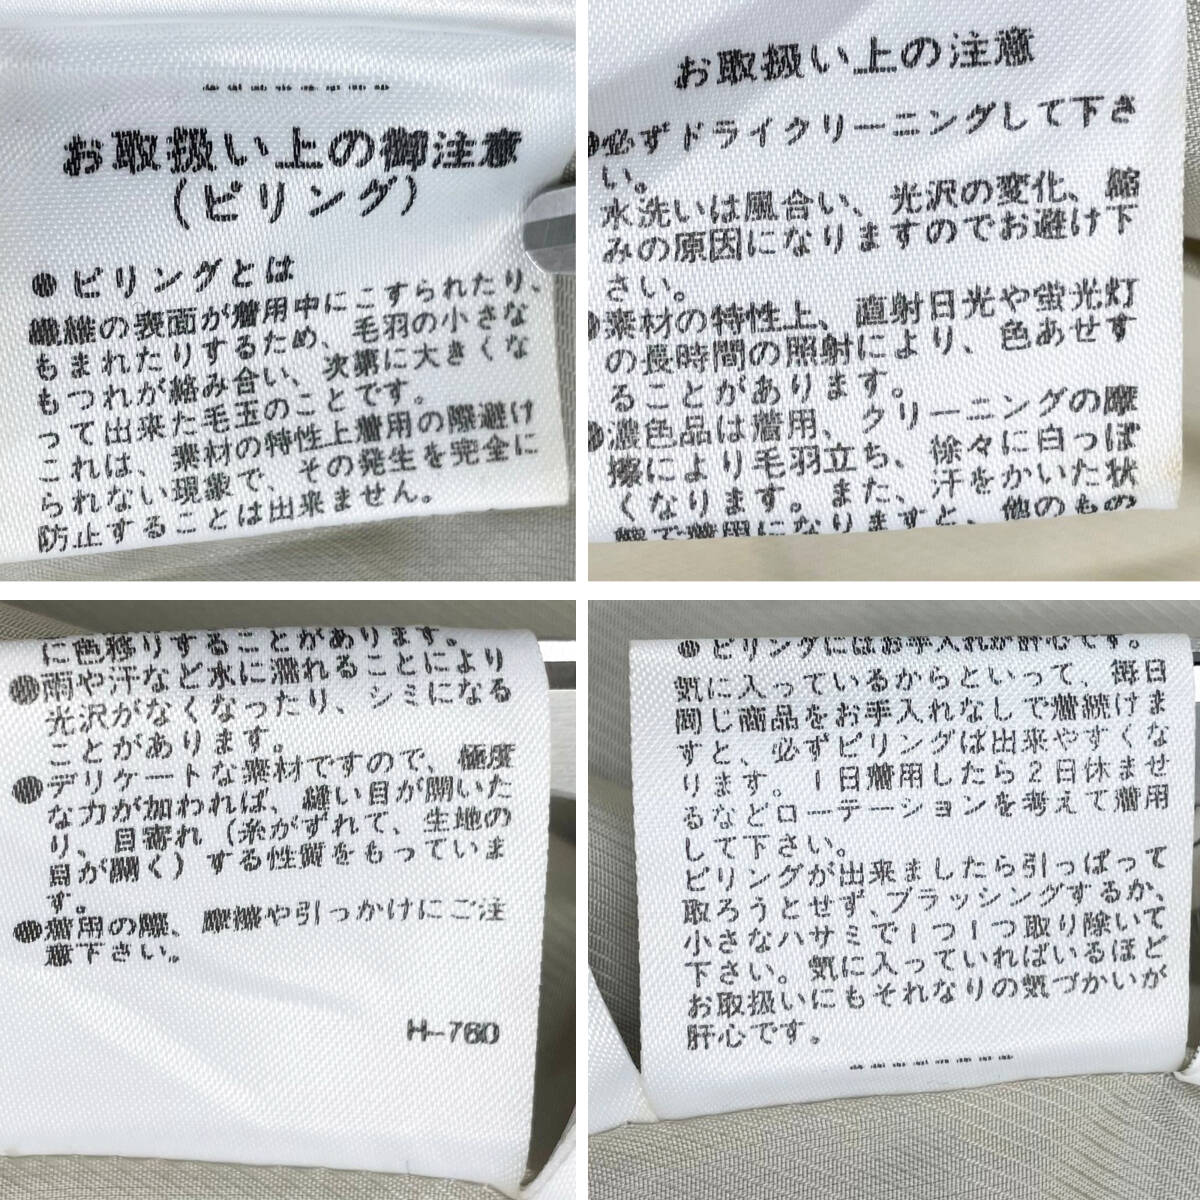 お取扱い上の御注意
(ピリング)
●ピリングとは
繊維の表面が着用中にこすられたり、
もまれたりするため、毛羽の小さな
もつれが絡み合い、次第に大きくな
って出来た毛玉のことです。
これは、素材の特性上着用の際避け
られない現象で、その発生を完全に
防止することは出来ません。
お取扱い上の注意
●必ずドライクリーニングして下さ
い。
水洗いは風合い、光沢の変化、縮
みの原因になりますのでお避け下
さい。
●素材の特性上、直射日光や蛍光灯
の長時間の照射により、色あせす
ることがあります。
●濃色品は着用、クリーニングの摩
擦により毛羽立ち、徐々に白っぽ
くなります。また、汗をかいた状
態で着用になりますと、他のもの
に色移りすることがあります。
●雨や汗など水に濡れることにより
光沢がなくなったり、シミになる
ことがあります。
●デリケートな素材ですので、極度
な力が加われば、縫い目が開いた
り、目寄れ(糸がずれて、生地の
目が開く)する性質をもっていま
す。
●着用の際、摩擦や引っかけにご注
意下さい。
H-760
●ピリングにはお手入れが肝心です。
気に入っているからといって、毎日
同じ商品をお手入れなしで着続けま
すと、必ずピリングは出来やすくな
ります。1日着用したら2日休ませ
るなどローテーションを考えて着用
して下さい。
ピリングが出来ましたら引っぱって
取ろうとせず、ブラッシングするか、
小さなハサミで1つ1つ取り除いて
下さい。気に入っていればいるほど
お取扱いにもそれなりの気づかいが
肝心です。